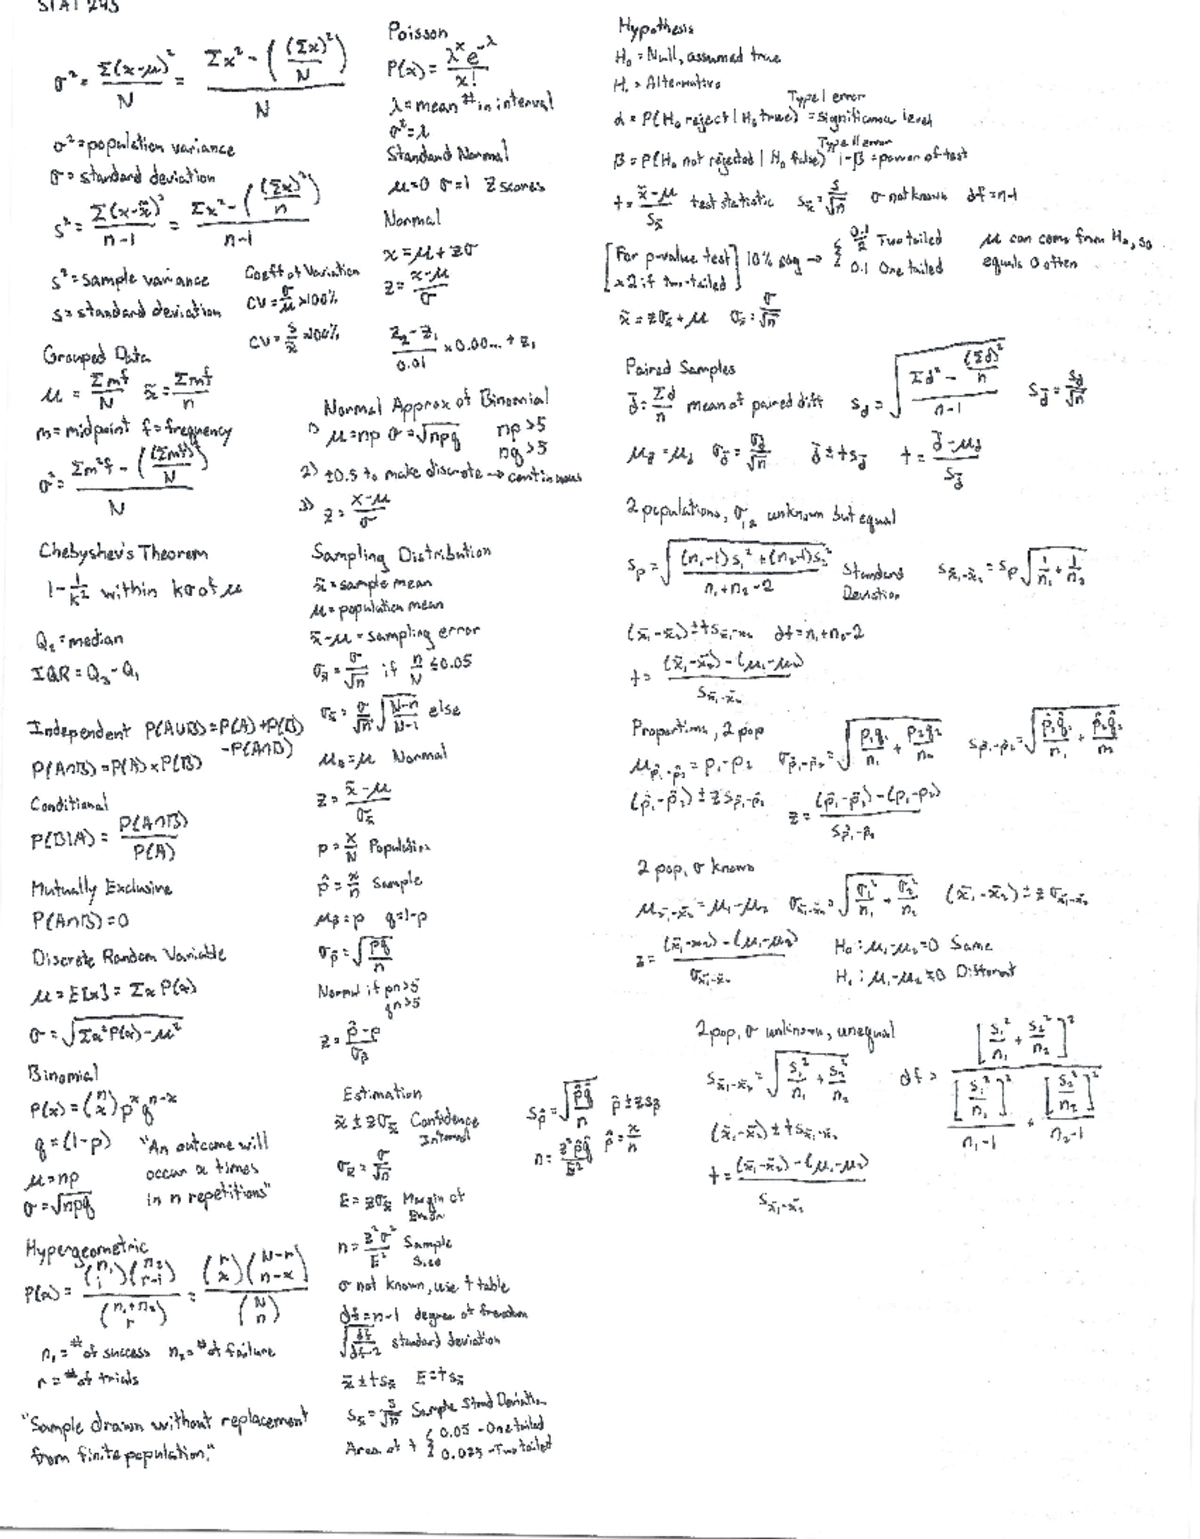 STAT 245
σ² = Σ(x-μ)²/N = (Σx² - ((Σx)²/N))/N
σ² = population variance
σ = standard deviation
s² = Σ(x-x̄)²/(n-1) = (Σx² - ((Σx)²/n))/(n-1)
s² = sample variance
s = standard deviation
Coeff of Variation
CV = σ/μ × 100%
CV = s/x̄ × 100%
Grouped Data
μ = Σmf/N x̄ = Σmf/n
m = midpoint f = frequency
σ² = (Σm²f - ((Σmf)²/N))/N
Chebyshev's Theorem
1 - 1/k² within kσ of μ
Q₂ = median
IQR = Q₃ - Q₁
Independent P(A∪B) = P(A) + P(B)
- P(A∩B)
P(A∩B) = P(A) × P(B)
Conditional
P(B|A) = P(A∩B)/P(A)
Mutually Exclusive
P(A∩B) = 0
Discrete Random Variable
μ = E[x] = Σx P(x)
σ = √(Σx²P(x) - μ²)
Binomial
P(x) = (n x) pˣ qⁿ⁻ˣ
q = (1-p)
μ = np
σ = √npq
"An outcome will
occur x times
in n repetitions"
Hypergeometric
P(x) = (n₁ i)(n₂ r-i)/(n₁+n₂ r) = (r x)(N-r n-x)/(N n)
n₁ = # of success n₂ = # of failure
r = # of trials
"Sample drawn without replacement
from finite population."
Poisson
P(x) = λˣ e^-λ / x!
λ = mean # in interval
σ² = λ
Standard Normal
μ=0 σ=1 Z scores
Normal
x = μ + zσ
z = (x-μ)/σ
(z₂ - z₁)/0.01 × 0.00... + z₁
Normal Approx of Binomial
1) μ = np σ = √npq np > 5
nq > 5
2) ±0.5 to make discrete → continuous
3) z = (x-μ)/σ
Sampling Distribution
x̄ = sample mean
μ = population mean
x̄ - μ = sampling error
σx̄ = σ/√n if n/N ≤ 0.05
σx̄ = σ/√n √((N-n)/(N-1)) else
μx̄ = μ Normal
z = (x̄-μ)/σx̄
p = x/N Population
p̂ = x/n Sample
μp̂ = p q = 1-p
σp̂ = √(pq/n)
Normal if pn > 5
qn > 5
z = (p̂-p)/σp̂
Estimation
x̄ ± zσx̄ Confidence
Interval
σx̄ = σ/√n
E = zσx̄ Margin of
Error
n = z²σ²/E² Sample
Size
σ not known, use t table
df = n-1 degree of freedom
√(df/(df-2)) standard deviation
x̄ ± tsx̄ E = tsx̄
sx̄ = s/√n Sample Stand Deviation
Area of t { 0.05 - One tailed
0.025 - Two tailed
sp̂ = √(p̂q̂/n) p̂ ± zsp̂
n = z²p̂q̂/E² p̂ = x/n
Hypothesis
H₀ = Null, assumed true
H₁ = Alternative
Type I error
α = P(H₀ reject | H₀ true) = significance level
Type II error
β = P(H₀ not rejected | H₀ false) 1-β = power of test
t = (x̄-μ)/sx̄ test statistic sx̄ = s/√n σ not known df = n-1
[For p-value test] 10% sig → { 0.1/2 Two tailed
[×2 if two-tailed] 0.1 One tailed
μ can come from H₀, so
equals 0 often
x̄ = zσx̄ + μ σx̄ = σ/√n
Paired Samples
d̄ = Σd/n mean of paired diff sd = √((Σd² - (Σd)²/n)/(n-1)) sd̄ = sd/√n
μd̄ = μd σd̄ = σd/√n d̄ ± tsd̄ t = (d̄-μd)/sd̄
2 populations, σ₁,₂ unknown but equal
sp = √(((n₁-1)s₁² + (n₂-1)s₂²)/(n₁+n₂-2)) Standard
Deviation
sx̄₁-x̄₂ = sp√(1/n₁ + 1/n₂)
(x̄₁-x̄₂) ± tsx̄₁-x̄₂ df = n₁+n₂-2
t = ((x̄₁-x̄₂) - (μ₁-μ₂))/sx̄₁-x̄₂
Proportions, 2 pop
μp̂₁-p̂₂ = p₁-p₂ σp̂₁-p̂₂ = √(p₁q₁/n₁ + p₂q₂/n₂) sp̂₁-p̂₂ = √(p̂₁q̂₁/n₁ + p̂₂q̂₂/n₂)
(p̂₁-p̂₂) ± zsp̂₁-p̂₂ z = ((p̂₁-p̂₂) - (p₁-p₂))/sp̂₁-p̂₂
2 pop, σ known
μx̄₁-x̄₂ = μ₁-μ₂ σx̄₁-x̄₂ = √(σ₁²/n₁ + σ₂²/n₂) (x̄₁-x̄₂) ± zσx̄₁-x̄₂
z = ((x̄₁-x̄₂) - (μ₁-μ₂))/σx̄₁-x̄₂
H₀: μ₁-μ₂ = 0 Same
H₁: μ₁-μ₂ ≠ 0 Different
2 pop, σ unknown, unequal
sx̄₁-x̄₂ = √(s₁²/n₁ + s₂²/n₂)
df = [s₁²/n₁ + s₂²/n₂]² / ([s₁²/n₁]²/(n₁-1) + [s₂²/n₂]²/(n₂-1))
(x̄₁-x̄₂) ± tsx̄₁-x̄₂
t = ((x̄₁-x̄₂) - (μ₁-μ₂))/sx̄₁-x̄₂